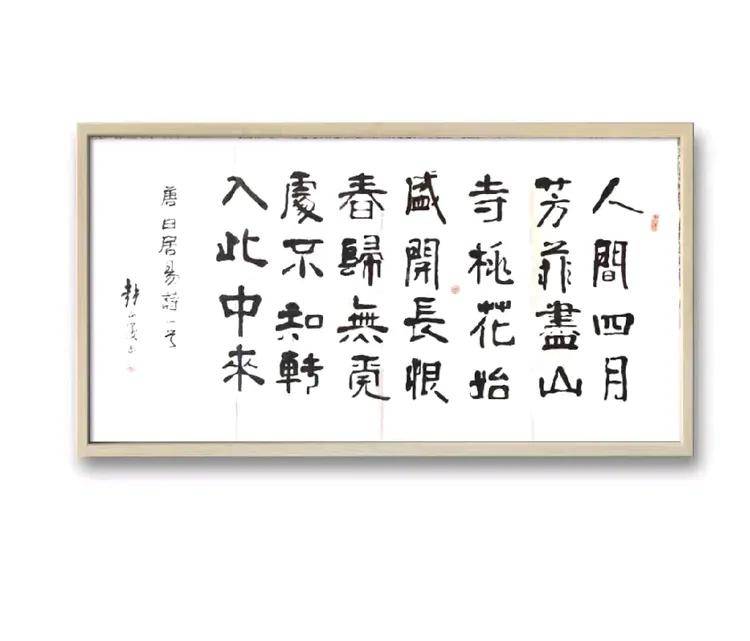 人間四月
芳菲盡山
寺桃花始
盛開長恨
春歸無覓
處不知轉
入此中來
唐白居易詩一首